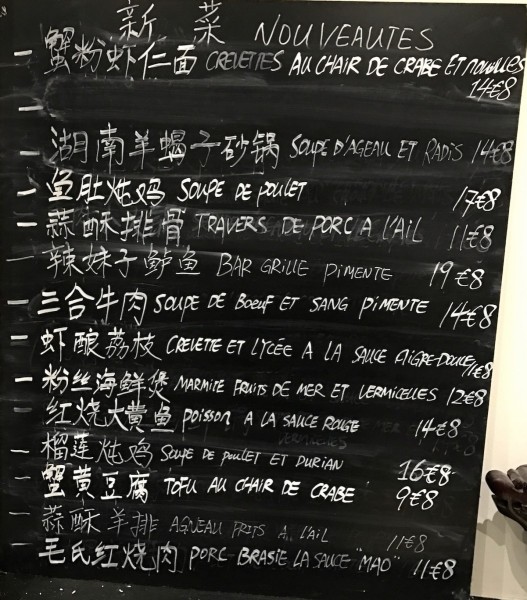 新 菜 NOUVEAUTES
- 蟹粉虾仁面 CREVETTES AU CHAIR DE CRABE ET nouilles
14€8
-
- 湖南羊蝎子砂锅 SOUPE D'AGEAU ET RADIS 14€8
- 鱼肚炖鸡 SOUPE DE POULET 17€8
- 蒜酥排骨 TRAVERS DE PORC A L'AIL 11€8
- 辣妹子鲈鱼 BAR GRILLE PIMENTE 19€8
- 三合牛肉 SOUPE DE BOEUF ET SANG PIMENTE 14€8
- 虾酿荔枝 CREVETTE ET LYCÉE A LA SAUCE AIGRE-DOUCE 11€8
- 粉丝海鲜煲 MARMITE FRUITS DE MER ET VERMICELLES 12€8
- 红烧大黄鱼 POISSON A LA SAUCE ROUGE 14€8
- 榴莲炖鸡 SOUPE DE POULET ET DURIAN 16€8
- 蟹黄豆腐 TOFU AU CHAIR DE CRABE 9€8
- 蒜酥羊排 AGNEAU FRITS A L'AIL 11€8
- 毛氏红烧肉 PORC BRASIE LA SAUCE "MAO" 11€8